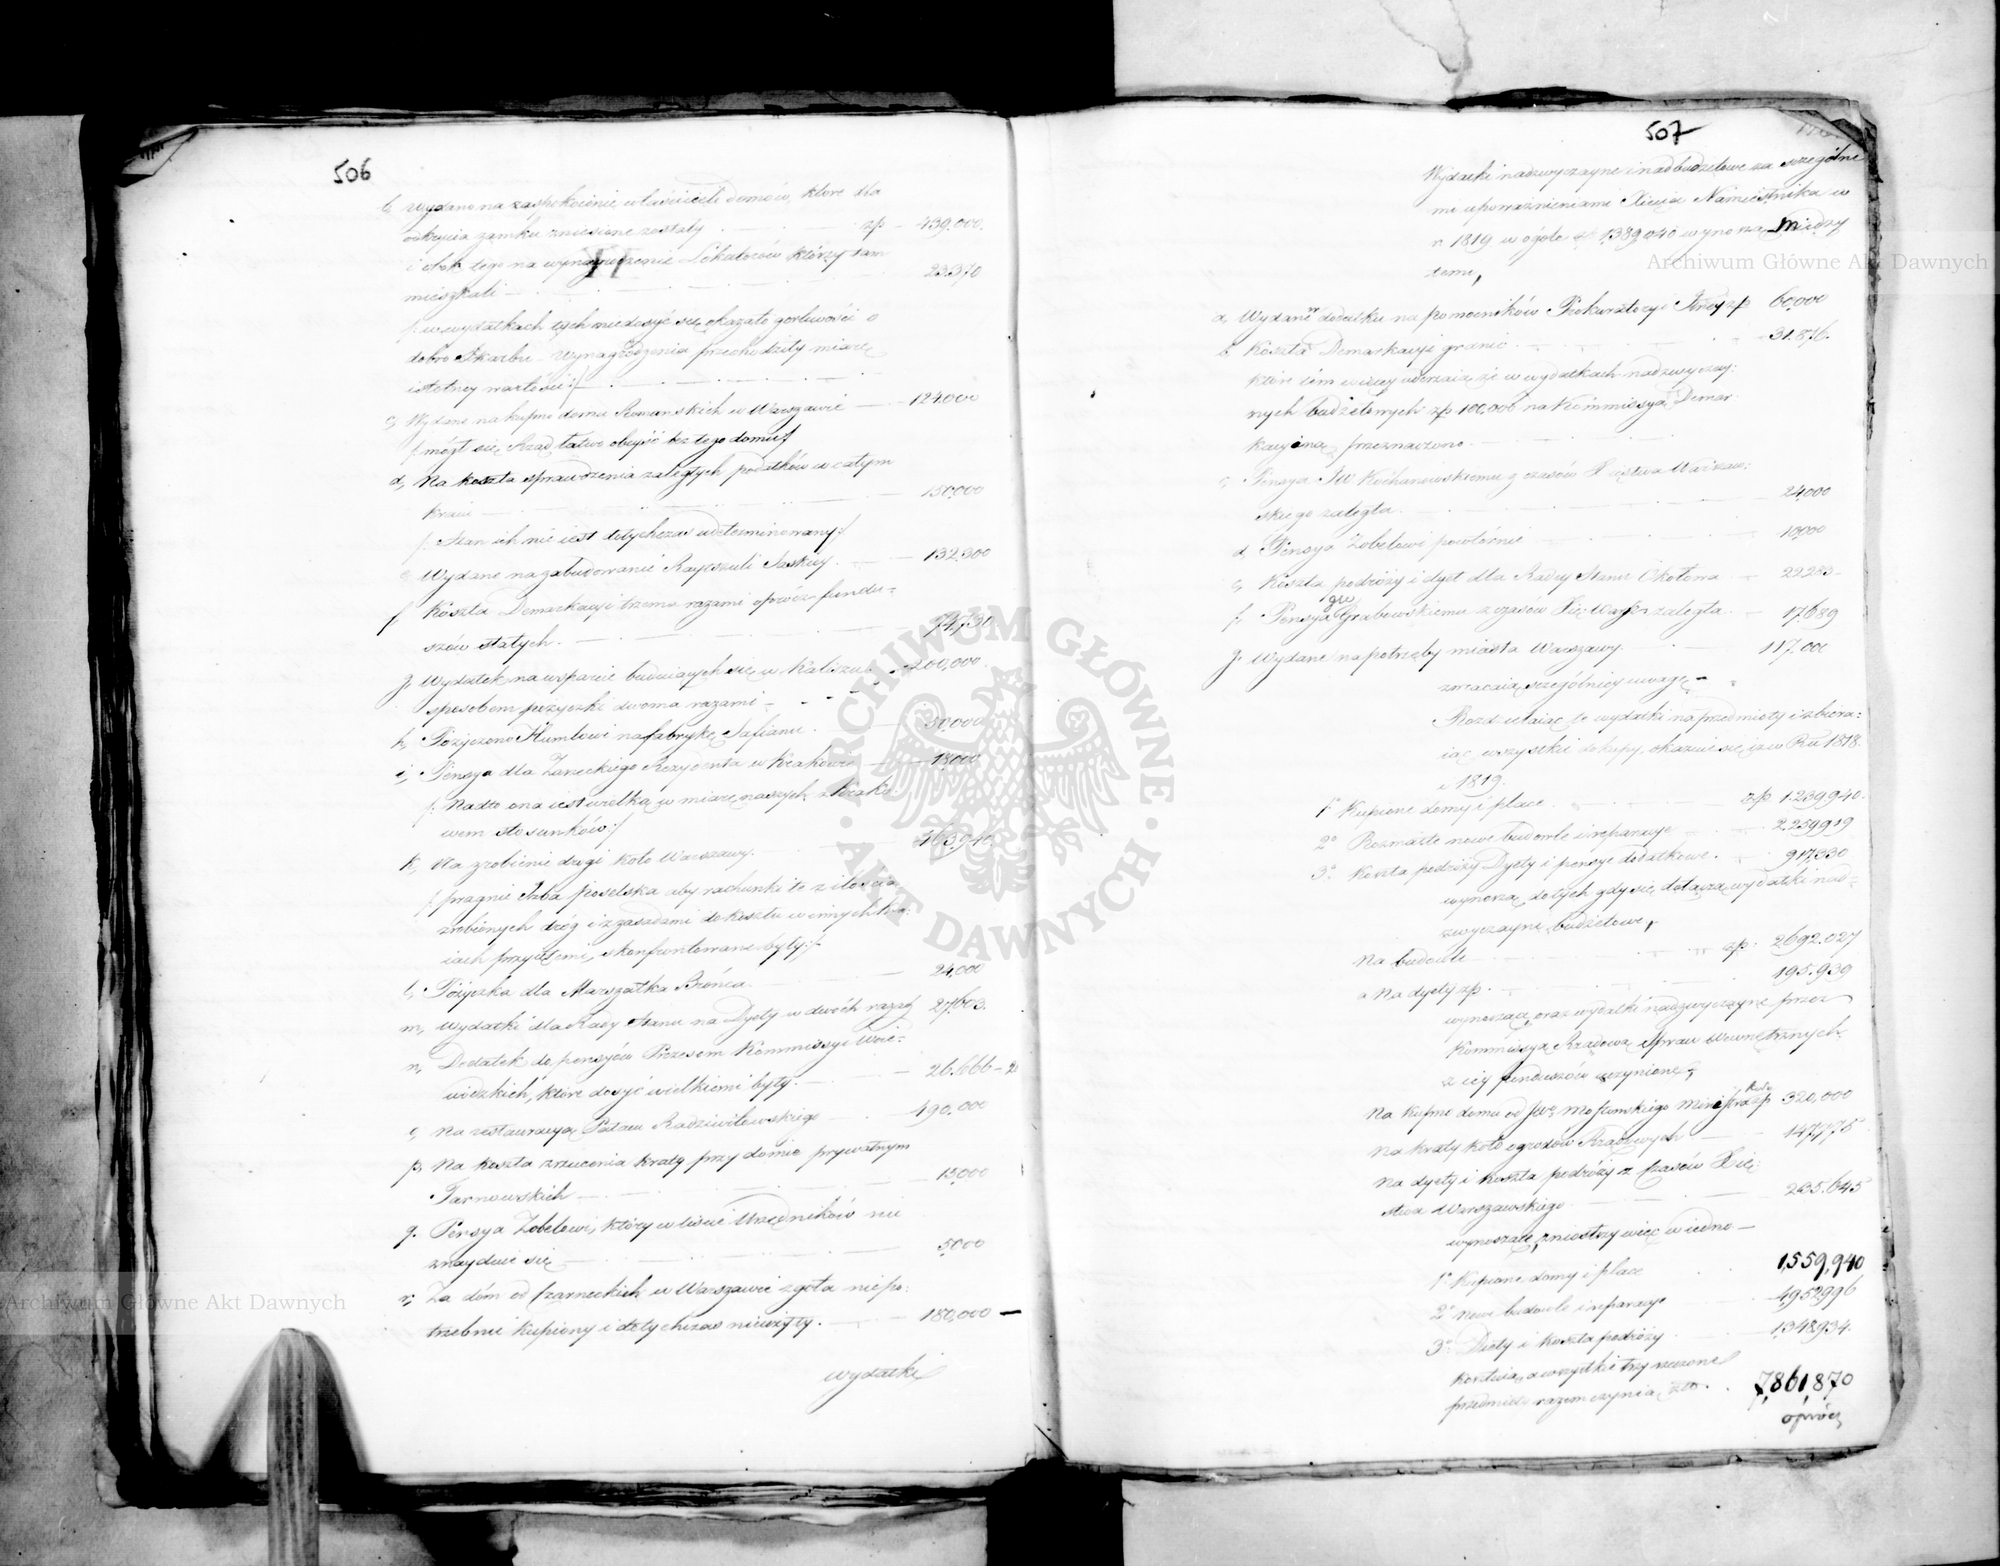 506
b, Wydano na zaspokoienie właścicieli domów, które dla
odkrycia zamku zniesione zostały zp 439,000.
i obok tego na wynagrodzenie Lokatorów którzy tam
mieszkali 23370
/: w wydatkach tych nie dosyć się okazało gorliwości o
dobro Skarbu – Wynagrodzenia przechodziły miarę
istotney wartości :/
c, Wydano na kupno domu Romanskich w Warszawie 124.000
/: mógł się Rząd łatwo obeyść bez tego domu :/
d, Na koszta sprawdzenia zaległych podatków w całym
kraiu 150,000
/: Stan ich nie iest dotychczas udeterminowany :/
e Wydano na zabudowanie Saskiey 132,300
f, Koszta Demarkacyi trzema razami oprócz fundu=
szów stałych. 74,730
g, Wydatek na wsparcie buduiących się w Kaliszu 200,000.
sposobem pożyczki dwoma razami
h, Pożyczono na fabrykę Safianu. 50,000
i, Pensya dla Zareckiego Rezydenta w Krakowie 18000
/: Nadto ona iest wielka w miarę naszych z Krako
wem stosunków :/
k, Na zrobienie drogi koło Warszawy. 463,940.
/: pragnie Izba Poselska aby rachunki te z ilością
zrobionych dróg i z zasadami do kosztu w innych kra=
iach przyiętemi, skonfrontowane były :/
l, Pożyczka dla Marszałka Brońca 24,000
m, Wydatki dla Rady Stanu na Dyety w dwóch razach 27603.
n, Dodatek do pensyów Prezesom Kommissyi Woie=
wódzkich, które dosyć wielkiemi były. 26,666 – 20
o, Na restauracyą Pałacu Radziwiłłowskiego 490,000
p, Na koszta zrzucenia kraty przy domie prywatnym
Tarnowskich 15,000
q. Pensya Zobelowi, który w liście Urzędników nie
znayduie się 5000
r, Za dóm od Czarneckich w Warszawie zgoła niepo=
trzebnie kupiony i dotychczas nieużyty. 180,000 –
Wydatki
507
Wydatki nadzwyczayne i nad budżetowe za szczegolne
mi upoważnieniami Xięcia Namiestnika w
r. 1819 w ogóle zł 1389,040 wynoszą między
temi,
a, Wydane dodatku na pomocników Prokuratoryi zp 60,000
b Koszta Demarkacyi granic 31.876.
które tém więcey uderzaią, że w wydatkach nadzwyczay:
nych budżetowych zp 100,000 na Kommissyą Demar
kacyiną przeznaczono.
c, Pensya JW Kochanowskiemu z czasów Xięstwa Warszaw:
skiego zaległa. 24000
d Pensya Zobelowi powtórnie 10000
e, Koszta podróży i dyet dla Rady Stanu Okołowa 29283
f, Pensya Grabowskiemu z czasów Xię: Warsz zaległa. 17689
g. Wydane na potrzeby miasta Warszawy. 117.000
zwracaią szczególniey uwagę
Rozdzielaiąc te wydatki na przedmioty i zbiera=
iąc wszystkie do kupy, okazuie się, iż w Ru 1818.
i 1819.
1° Kupione domy i place. zp. 1.239,940.
2° Rozmaite nowe budowle i reparacye 2.259,919
3° Koszta podróży Dyety i pensye dodatkowe. 917,330
wynoszą, do tych gdy się dołączą wydatki nad=
zwyczayne budżetowe,
Na budowle zp. 2.692.027
a Na dyety zp. 195.939
wynoszące, oraz wydatki nadzwyczayne przez
Kommissyą Rządową Spraw Wewnętrznych
z iey funduszów uczynione;
Na kupno domu od JWo Mostowskiego Ministra zp 320,000
Na kraty koło ogrodów Rządowych
Na dyety i koszta podróży z czasów Xię:
stwa Warszawskiego 235.645
wynoszące, zniosłszy więc w iedno –
1° Kupione domy i place 1,559,940
2° Nowe budowle i reparacye 4952996
3° Diety i koszta podróży 1348934.
kosztuią, a wszystkie trzy rzeczone
przedmioty razem czynią złp. 7,861,870
oprócz
Archiwum Główne Akt Dawnych
Archiwum Główne Akt Dawnych
ARCHIWUM GŁÓWNE AKT DAWNYCH